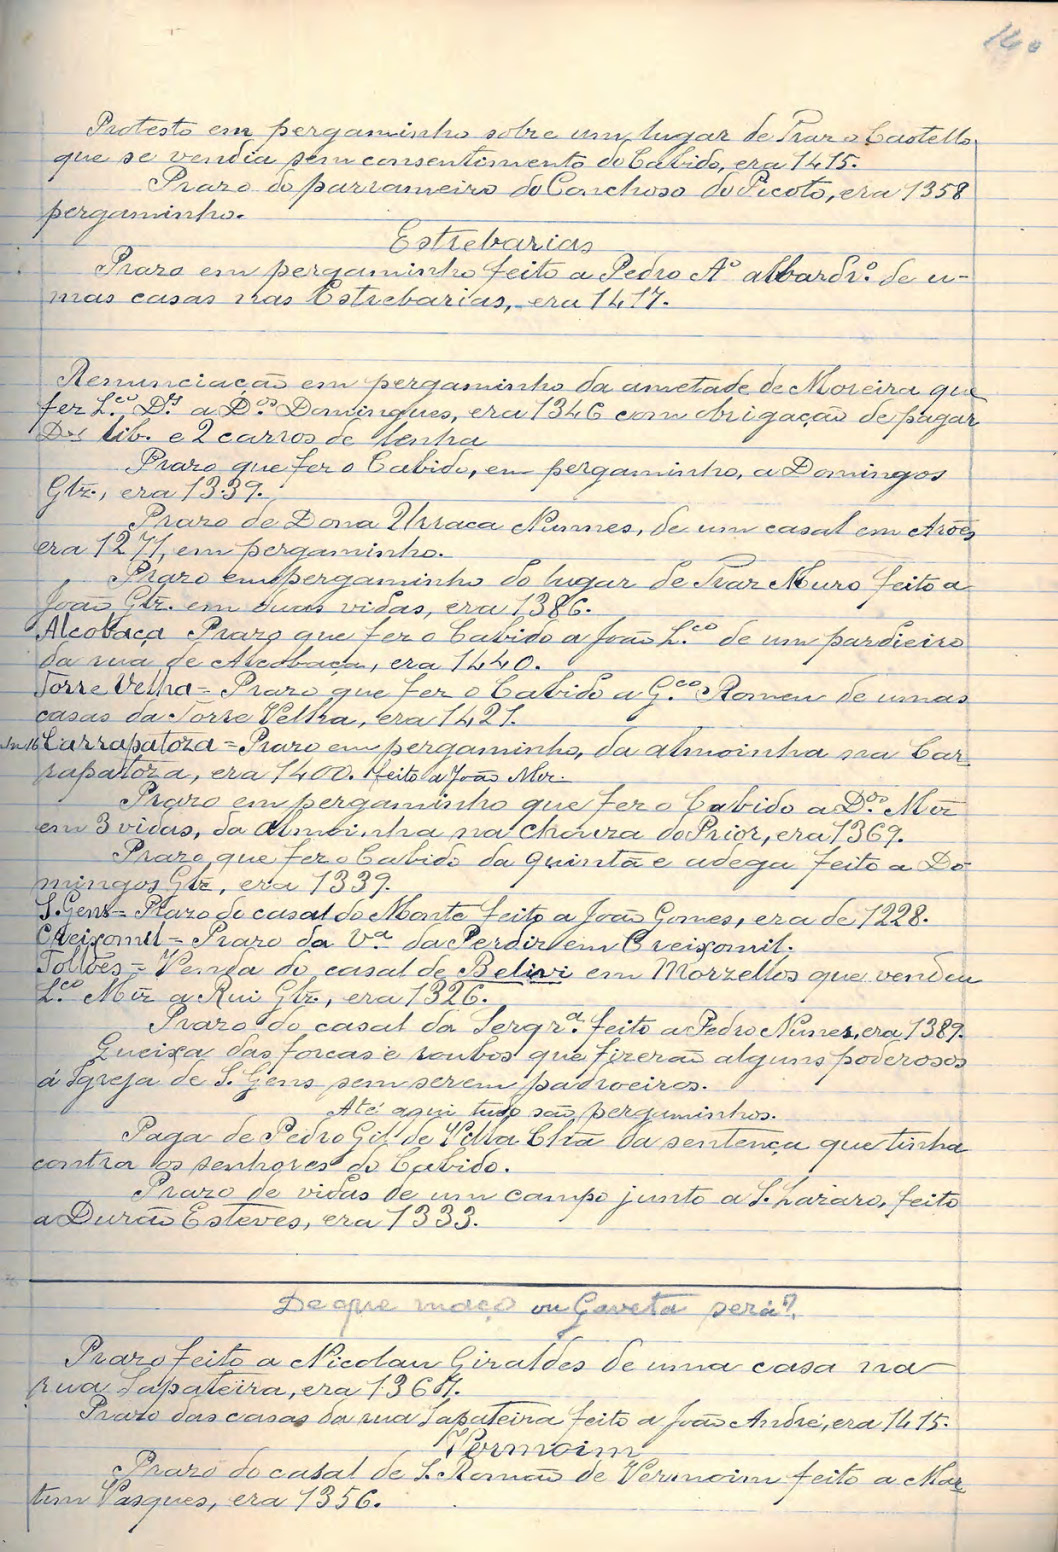 140
Protesto em pergaminho sobre um lugar de Traz o Castello,
que se vendia sem consentimento do Cabido, era 1415.
Prazo do pardameiro do Conchoso do Picoto, era 1358
pergaminho.
Estrebarias
Prazo em pergaminho feito a Pedro Aº albardrº. de u-
mas casas nas Estrebarias, era 1417.
Renunciação em pergaminho da ametade de Moreira que
fez L.ço D.es a D.os Domingues, era 1346 com obrigação de pagar
lib. e 2 carros de lenha
Prazo que fez o Cabido, em pergaminho, a Domingos
Glz., era 1339.
Prazo de Dona Urraca Nunnes, de um casal em Arões
era 1271, em pergaminho.
Prazo em pergaminho do lugar de Traz Muro feito a
João Glz. em duas vidas, era 1386.
Alcobaça Prazo que fez o Cabido a João L.ço de um pardieiro
da rua de Alcobaça, era 1440.
Torre Velha = Prazo que fez o Cabido a G.co Romeu de umas
casas da Torre Velha, era 1421.
Carrapatoza = Prazo em pergaminho, da almoinha na Car-
rapatoza, era 1400. feito a João Mz.
Prazo em pergaminho que fez o Cabido a D.os Miz
em 3 vidas, da almoinha na chouza do Prior, era 1369.
Prazo, que fez o Cabido da quintã e adega feito a Do-
mingos Glz, era 1339.
S. Gens = Prazo do casal do Monte feito a João Gomes, era de 1228.
Creixomil = Prazo da V.a da Perdiz em Creixomil.
Tollões = Venda do casal de Belivi em Morzellos que vendeu
L.ço Miz a Rui Glz., era 1326.
Prazo do casal da Sergr.a feito a Pedro Nunes, era 1389.
Queixa das forcas e roubos que fizerão alguns poderosos
á Igreja de S. Gens sem serem padroeiros.
Até aqui tudo são pergaminhos.
Paga de Pedro Gil de Villa Chã da sentença que tinha
contra os senhores do Cabido.
Prazo de vidas de um campo junto a S. Lazaro, feito
a Durão Esteves, era 1333.
De que maço ou Gaveta será?
Prazo feito a Nicolau Giraldes de uma casa na
rua Sapateira, era 1367.
Prazo das casas da rua Sapateira feito a João André, era 1415.
Vermoim
Prazo do casal de S. Romão de Vermoim feito a Mar-
tim Vasques, era 1356.